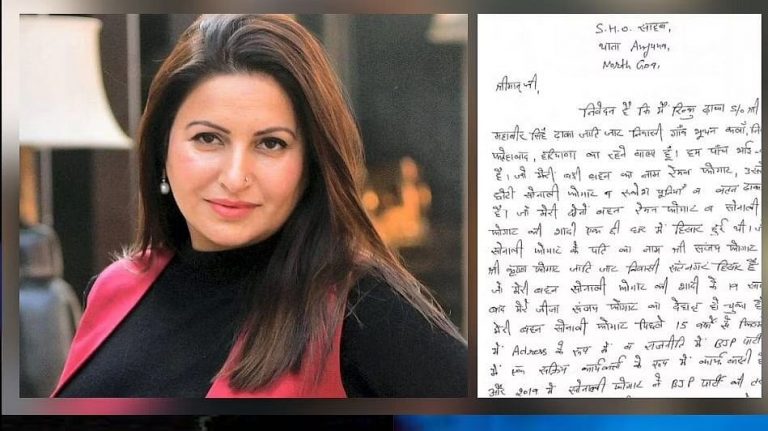 S.H.O. साहब,
थाना Anjuna,
North Goa,
श्रीमान जी,
निवेदन है कि मैं रिन्कु ढाका S/o श्री
महावीर सिंह ढाका जाति जाट निवासी गाँव भूथन कलाँ,
फतेहाबाद, हरियाणा का रहने वाला हूँ। हम पाँच भाई-
है। जो मेरी बड़ी बहन का नाम रेमन फोगाट,
छोटी सोनाली फोगाट व व वतन ढाका
है। जो मेरी दोनों बहन रेमन फोगाट व सोनाली
फोगाट की शादी एक ही घर में हिसार हुई थी।
सोनाली फोगाट के पति का नाम श्री संजय फोगाट
श्री फोगाट जाति जाट निवासी संतनगर हिसार है
जो मेरी बहन सोनाली फोगाट की शादी के
बाद मेरे जीजा संजय फोगाट का देहांत हो चुका है
मेरी बहन सोनाली फोगाट पिछले 15 वर्षों से
में के रूप में व राजनीति में BJP पार्टी
में एक सक्रिय कार्यकर्ता के रूप में कार्य करती
और 2019 में सोनाली फोगाट ने BJP पार्टी की